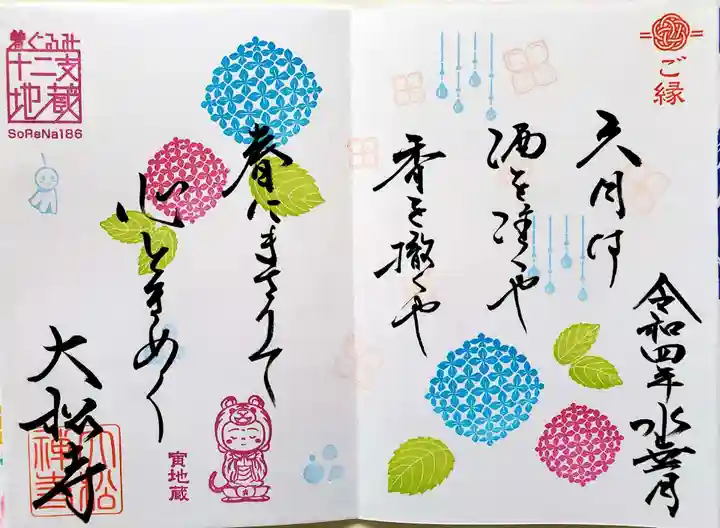 ご縁
令和四年 水無月
六月は
酒を注ぐや
香を撒くや
春にまさりて
心ときめく
大松寺
着ぐるみ
十二支
地蔵
SoRaNa186
寅地蔵